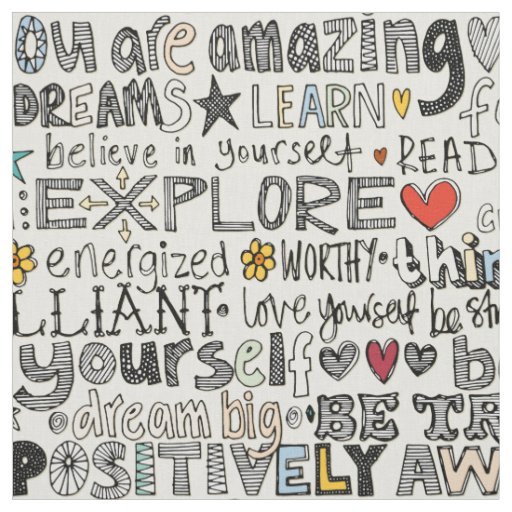 You are amazing
DREAMS LEARN
believe in yourself READ
EXPLORE
energized WORTHY thin
LLIANT love yourself be str
yourself be
dream big BE TR
POSITIVELY AW